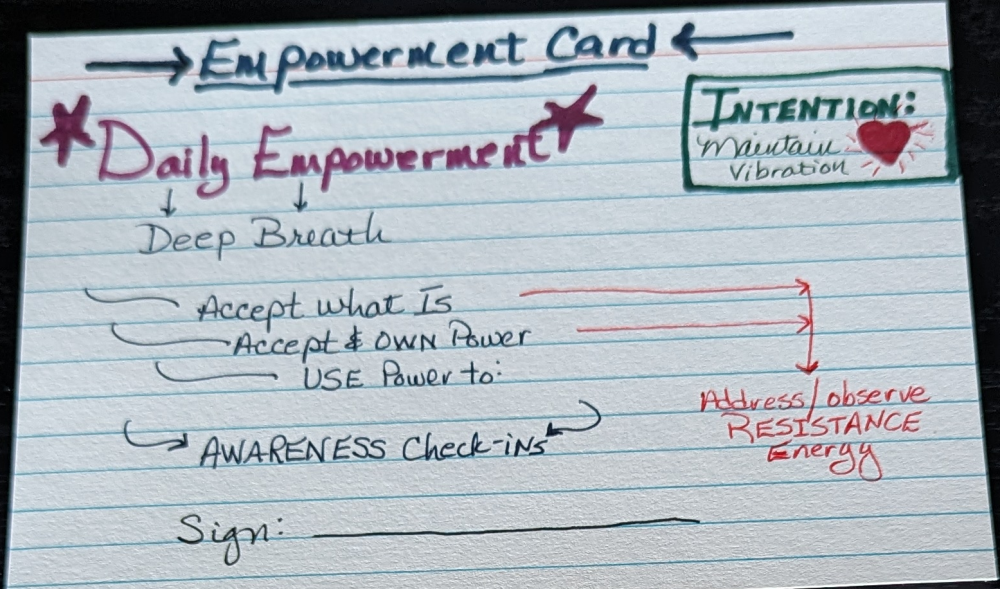 Empowerment Card
INTENTION:
Maintain
Vibration
Daily Empowerment
Deep Breath
Accept what Is
Accept & OWN Power
USE Power to:
Address/observe
RESISTANCE
Energy
AWARENESS Check-iNs
Sign: